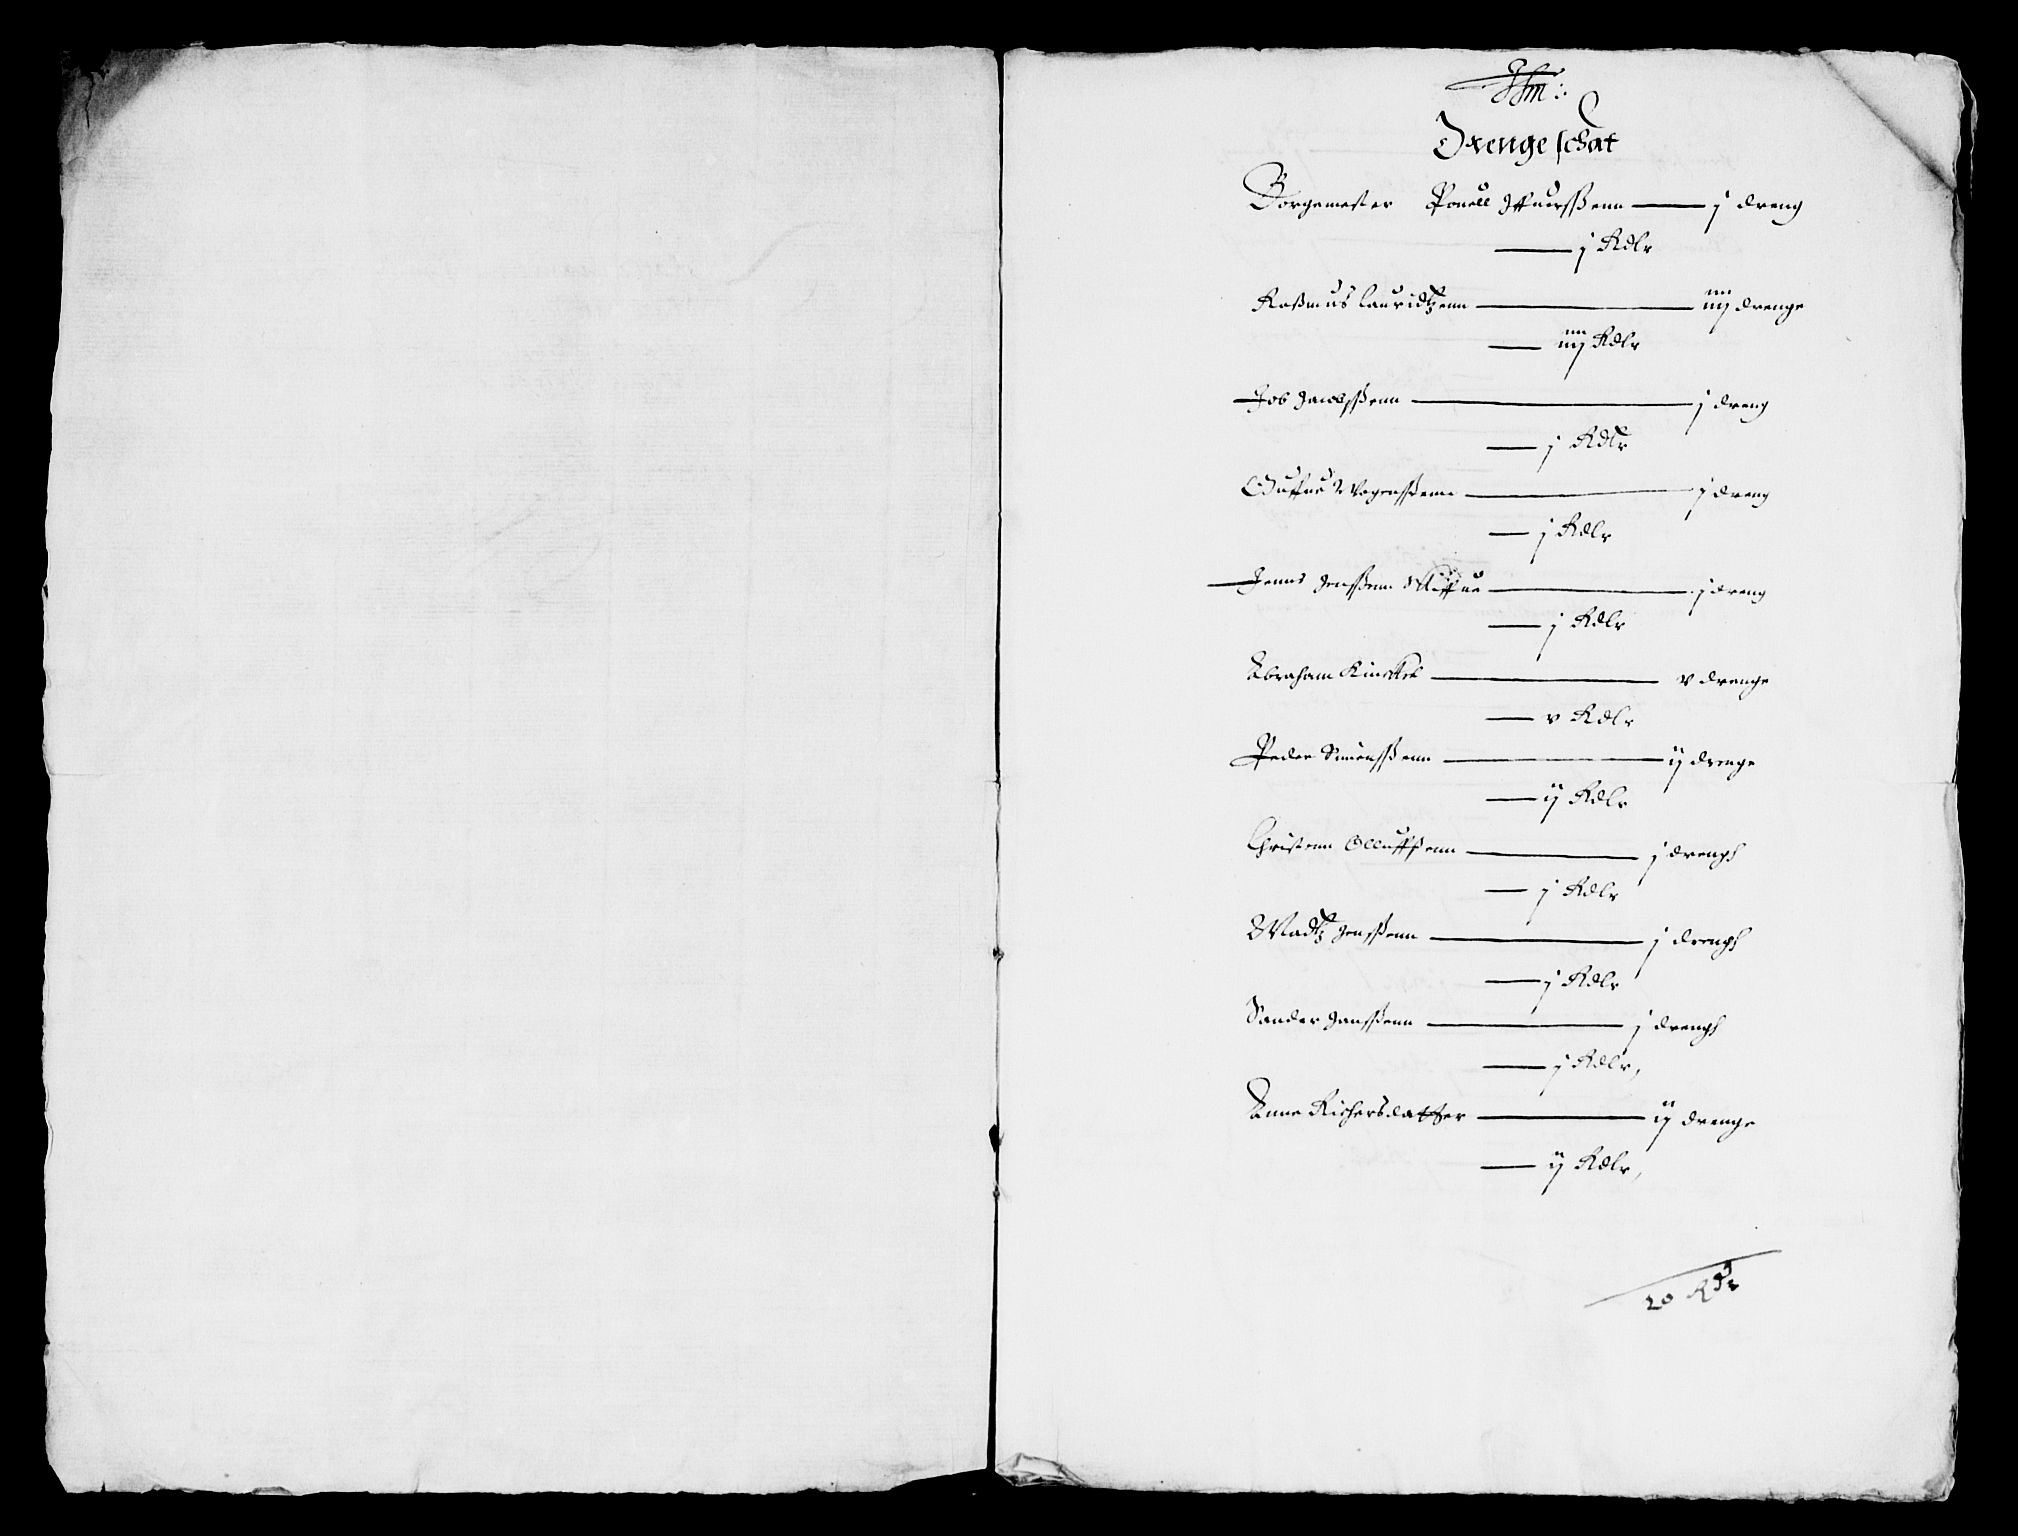 Drenge schat
Borgemester Pouell Iffuerssenn — j dreng
— j Rdlr
Rassmus Lauridtzenn — iiij drenge
— iiij Rdlr
Job Jacobssenn — j dreng
— j Rdlr
— j dreng
— j Rdlr
Jenns Jenssenn — j dreng
— j Rdlr
Abraham — v drenge
— v Rdlr
Peder Simenssenn — ij drenge
— ij Rdlr
Christenn Olluffssenn — j drengh
— j Rdlr
Madtz Jenssenn — j drengh
— j Rdlr
Sander Janssenn — j drengh
— j Rdlr,
Anne Richersdatter — ij drenge
— ij Rdlr,
20 Rdr